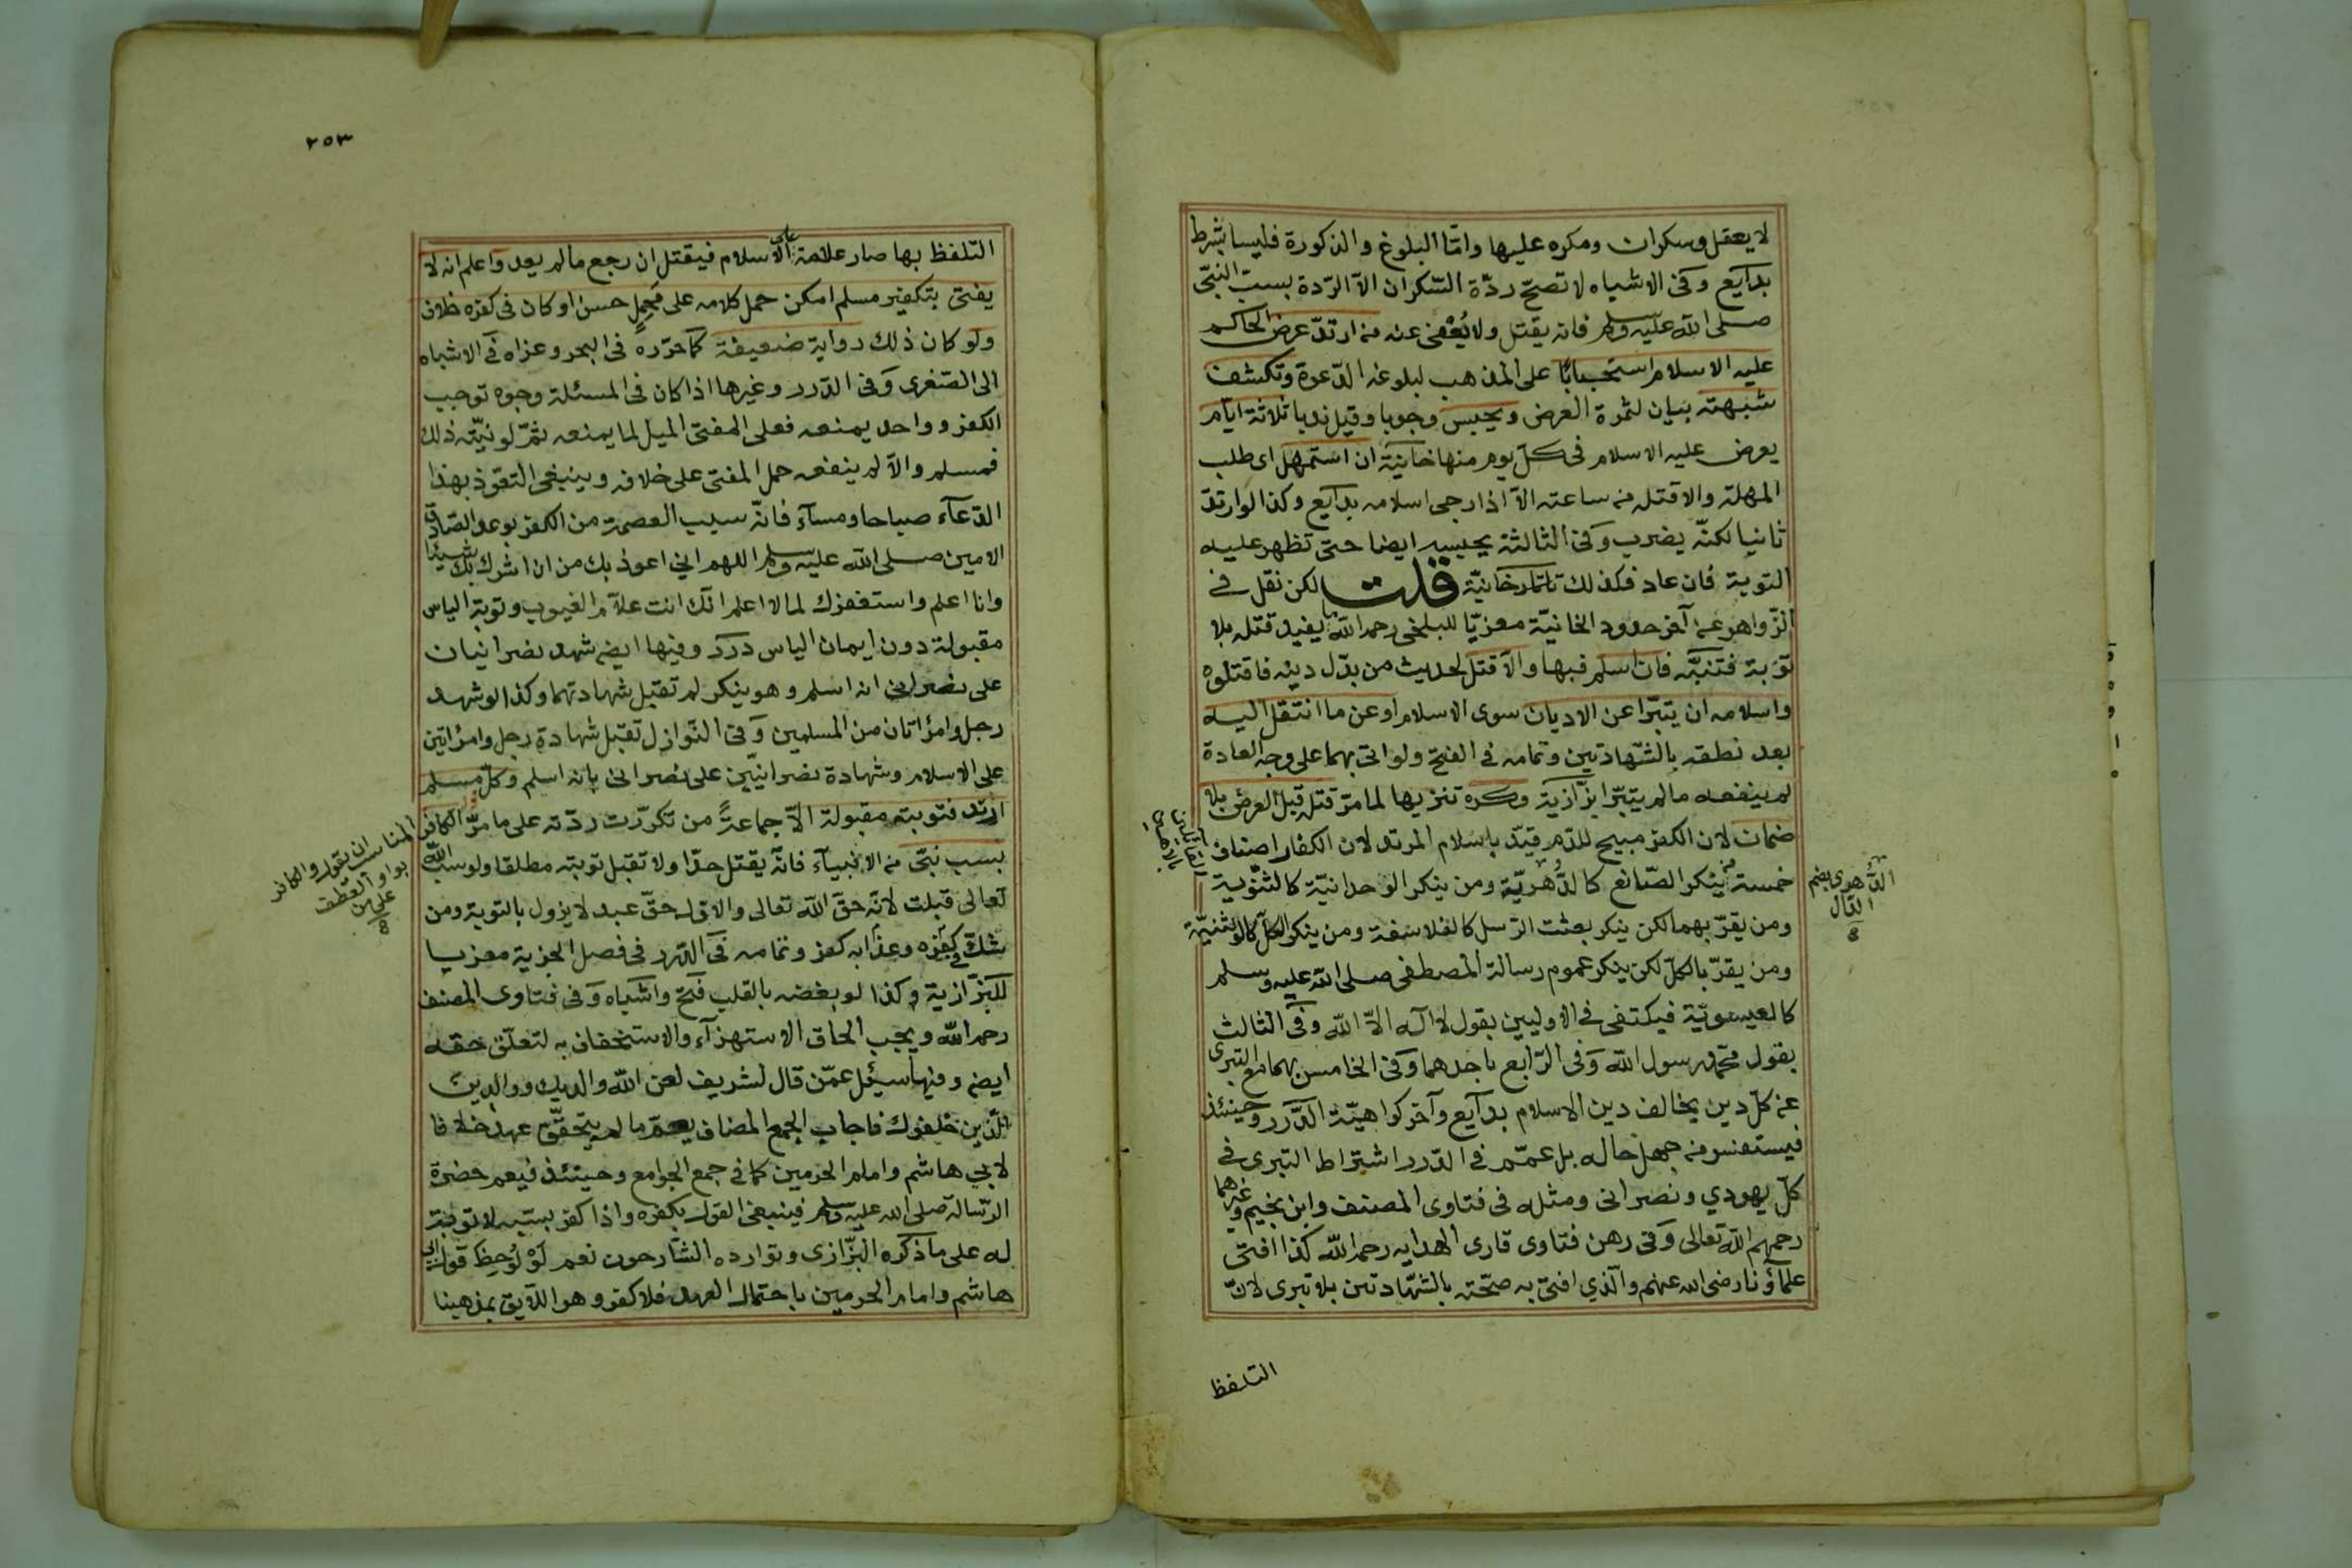 لا يعقل وسكران ومكره عليها وامّا البلوغ والذكورة فليسا بشرط
بدآيع وفى الاشباه لا تصحّ ردّة السّكران الاّ الرّدة بسبّ النبىّ
صلى اللّه عليه وسلم فانه يقتل ولا يُعْفى عنه من ارتدّ عرض الحاكم
عليه الاسلام استحبابًا على المذهب لبلوغه الدّعوة وتكشف
شبهته بيان لثمرة العرض ويحبس وجوبا وقيل ندبا ثلاثة ايّام
يعرض عليه الاسلام فى كلّ يوم منها خانيّة ان استمهل اى طلب
المهلة والا قتله من ساعته الاّ اذا رجى اسلامه بدآيع وكذا لو ارتدّ
ثانيا لكنّه يضرب وفى الثالثة يحبس ايضا حتى تظهر عليه
التوبة فان عاد فكذلك تاتارخانيّة قلت لكن نقل فى
الزّواهر عن آخر حدود الخانيّة معزيّا للبلخى رحمه اللّه ما يفيد قتله بلا
توبة فتنبّه فان اسلم فبها والاّ قتل لحديث من بدّل دينه فاقتلوه
واسلامه ان يتبرّا عن الاديان سوى الاسلام او عن ما انتقل اليه
بعد نطقه بالشّهادتين وتمامه فى الفتح ولو اتى بهما على وجه العادة
لم ينفعه ما لم يتبرّا بزّازية وكره تنزيها لما مرّ قتله قبل العرض بلا
ضمان لان الكفر مبيح للدّم قيّد باسلام المرتد لان الكفّار اصناف
خمسة من ينكر الصّانع كالدُّهريّة ومن ينكر الوحدانيّة كالثنّويّة
ومن يقرّ بهما لكن ينكر بعثت الرّسل كالفلاسفة ومن ينكر الكلّ كالوثنيّة
ومن يقرّ بالكلّ لكن ينكر عموم رسالة المصطفى صلى اللّه عليه وسلم
كالعيسويّة فيكتفى فى الاوليين بقول لا اله الاّ اللّه وفى الثالث
بقول محمّد رسول اللّه وفى الرّابع باحدهما وفى الخامس بهما مع التبرى
عن كلّ دين يخالف دين الاسلام بدآيع وآخر كراهيّة الدّرر وحينئذ
فيستفسر من جهل حاله بل عمّم فى الدّرر اشتراط التبرى فى
كلّ يهودي ونصرانى ومثله فى فتاوى المصنف وابن نجيم وغيرهما
رحمهم اللّه تعالى وفى رهن فتاوى قارى الهدايه رحمه اللّه كذا افتى
علمآؤنا رضى اللّه عنهم والّذي افتى به صحّته بالشّهادتين بلا تبرى لانّ
الدُّهرى بضم
الدّال
التلفظ
٢٥٣
التلفظ بها صار علامة على الاسلام فيقتل ان رجع ما لم يعد واعلم انه لا
يفتى بتكفير مسلم امكن حمل كلامه على محمل حسن او كان فى كفره خلاف
ولو كان ذلك رواية ضعيفة كما حرّره فى البحر وعزاه فى الاشباه
الى الصّغرى وفى الدّرر وغيرها اذا كان فى المسئلة وجوه توجب
الكفر وواحد يمنعه فعلى المفتى الميل لما يمنعه ثمّ لو نيّته ذلك
فمسلم والاّ لم ينفعه حمل المفتى على خلافه وينبغى التعوّذ بهذا
الدّعآء صباحا ومسآء فانّه سبب العصمة من الكفر بوعد الصّادق
الامين صلى اللّه عليه وسلم اللهم اني اعوذ بك من ان اشرك بك شيئا
وانا اعلم واستغفرك لما لا اعلم انّك انت علاّم الغيوب وتوبة الياس
مقبولة دون ايمان الياس درر وفيها ايضه شهد نصرانيان
على نصرانى انه اسلم وهو ينكر لم تقبل شهادتهما وكذا لو شهد
رجل وامرأتان من المسلمين وفى النّوازل تقبل شهادة رجل وامرأتين
على الاسلام وشهادة نصرانيّين على نصرانى بانه اسلم وكلّ مسلم
ارتد فتوبته مقبولة الاّ جماعةً من تكرّرت ردّته على ما مرّ الكافر
بسب نبىّ من الانبيآء فانّه يقتل حدّا ولا تقبل توبته مطلقا ولو سبّ اللّه
تعالى قبلت لانّه حقّ اللّه تعالى والاول حقّ عبد لا يزول بالتوبة ومن
شكّ فى كفره وعذابه كفر وتمامه فى الدّرر فى فصل الجزية معزيا
للبزّازية وكذا لو بغضه بالقلب فتح واشباه وفى فتاوى المصنف
رحمه اللّه ويجب الحاق الاستهزآء والاستخفاف به لتعلّق حقه
ايضه وفيها سئل عمّن قال لشريف لعن اللّه والديك ووالدين
الّذين خلفوك فاجاب الجمع المضاف يعمّ ما لم يتحقّق عهد خلافا
لابي هاشم وامام الحرمين كما فى جمع الجوامع وحينئذ فيعم حضرة
الرّسالة صلى اللّه عليه وسلم فينبغى القول بكفره واذا كفر بسبّه لا توبة
له على ما ذكره البزّازى وتوارده الشّارحون نعم لَوْ لُوحِظَ قول ابى
هاشم وامام الحرمين باحتمال العهد فلا كفر وهو اللّايق بمذهبنا
المناسب ان يقول والكافر
بواو العطف
على من